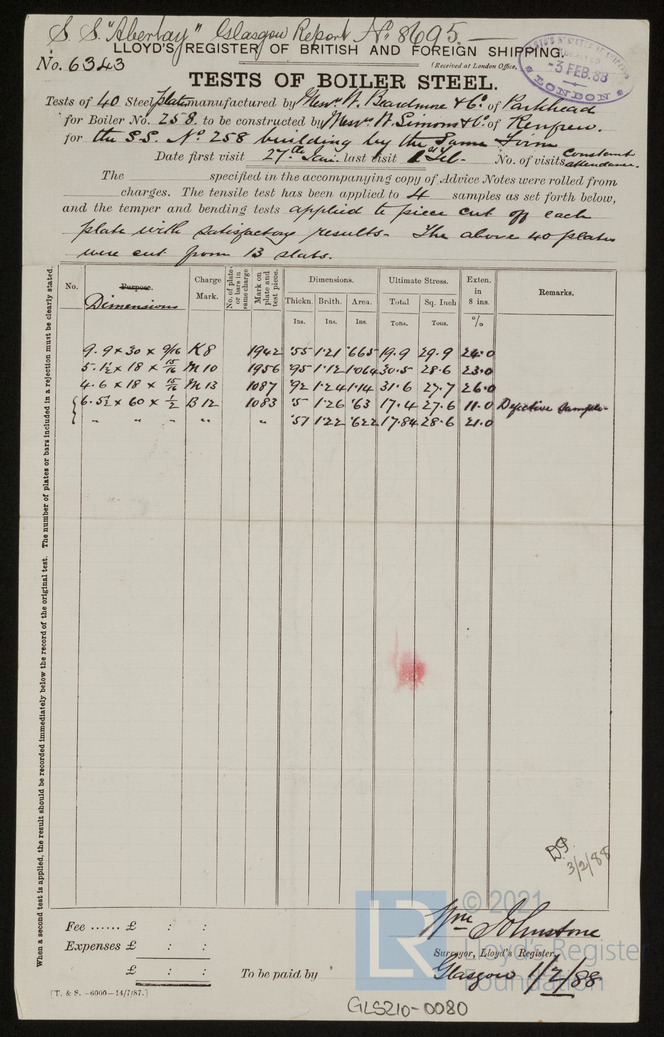 S. S. "Abertay" Glasgow Report No. 8695.
LLOYD'S REGISTER OF BRITISH AND FOREIGN SHIPPING.
No. 6343
(Received at London Office,
3 FEB. 88
LONDON
TESTS OF BOILER STEEL.
Tests of 40 Steel plates manufactured by Messrs. W. Beardmore & Co. of Parkhead
for Boiler No. 258. to be constructed by Messrs W. Simons & Co. of Renfrew.
for the S.S. No. 258 building by the same Firm
Date first visit 27th Jan. last visit 1st Feb. No. of visits Constant attendance.
The specified in the accompanying copy of Advice Notes were rolled from
charges. The tensile test has been applied to 4 samples as set forth below,
and the temper and bending tests applied to piece cut off each
plate with satisfactory results. The above 40 plates
were cut from 13 slabs.
When a second test is applied, the result should be recorded immediately below the record of the original test. The number of plates or bars included in a rejection must be clearly stated.
No. Purpose. Charge Mark. No. of plates or bars in same charge Mark on plate and test piece. Dimensions. Ultimate Stress. Exten. in 8 ins. Remarks.
Dimensions Thickn. Brdth. Area. Total Sq. Inch
Ins. Ins. Ins. Tons. Tons. %
9.9 x 30 x 9/16 K8 1942 .55 1.21 .665 19.9 29.9 24.0
5.1½ x 18 x 15/16 M10 1956 .95 1.12 1.064 30.5 28.6 23.0
4.6 x 18 x 15/16 M13 1087 .92 1.24 1.14 31.6 27.7 26.0
6.5½ x 60 x ½ B12 1083 .5 1.26 .63 17.4 27.6 11.0 Defective sample.
" " " " " .51 1.22 .622 17.84 28.6 21.0
3/2/88
Fee ...... £ : :
Expenses £ : :
£ : :
To be paid by
Wm Johnstone
Surveyor, Lloyd's Register,
Glasgow 1/2/88
[T. & S. -6000-14/7/87.]
© 2021
LR
Lloyd's Register
Foundation
GLS210-0080